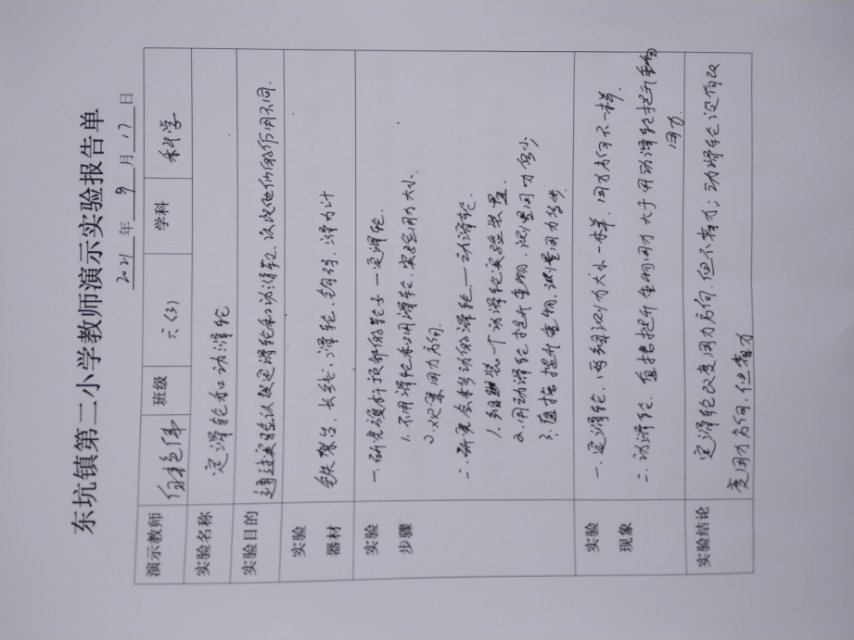 东坑镇第二小学教师演示实验报告单
2021 年 9 月 17 日
演示教师 班级 六(3) 学科 科学
实验名称 定滑轮和动滑轮
实验目的 通过实验认识定滑轮和动滑轮、认识他们的作用不同.
实验器材 铁架台、长线、滑轮、钩码、测力计
实验步骤 一.研究旗杆顶部的轮子一定滑轮.
1.不用滑轮和用滑轮,实验用力大小.
2.观察用力方向.
二.研究会移动的滑轮.一动滑轮.
1.组装一个动滑轮实验装置
2.用动滑轮提升重物、测量用力多少
3.直接提升重物,测量用力多少
实验现象 一.定滑轮、两组测力大小一样.用力方向不一样.
二.动滑轮、直接提升重物用力大于用动滑轮提升重物
用力.
实验结论 定滑轮改变用力方向.但不省力;动滑轮没有改
变用力方向.但省力